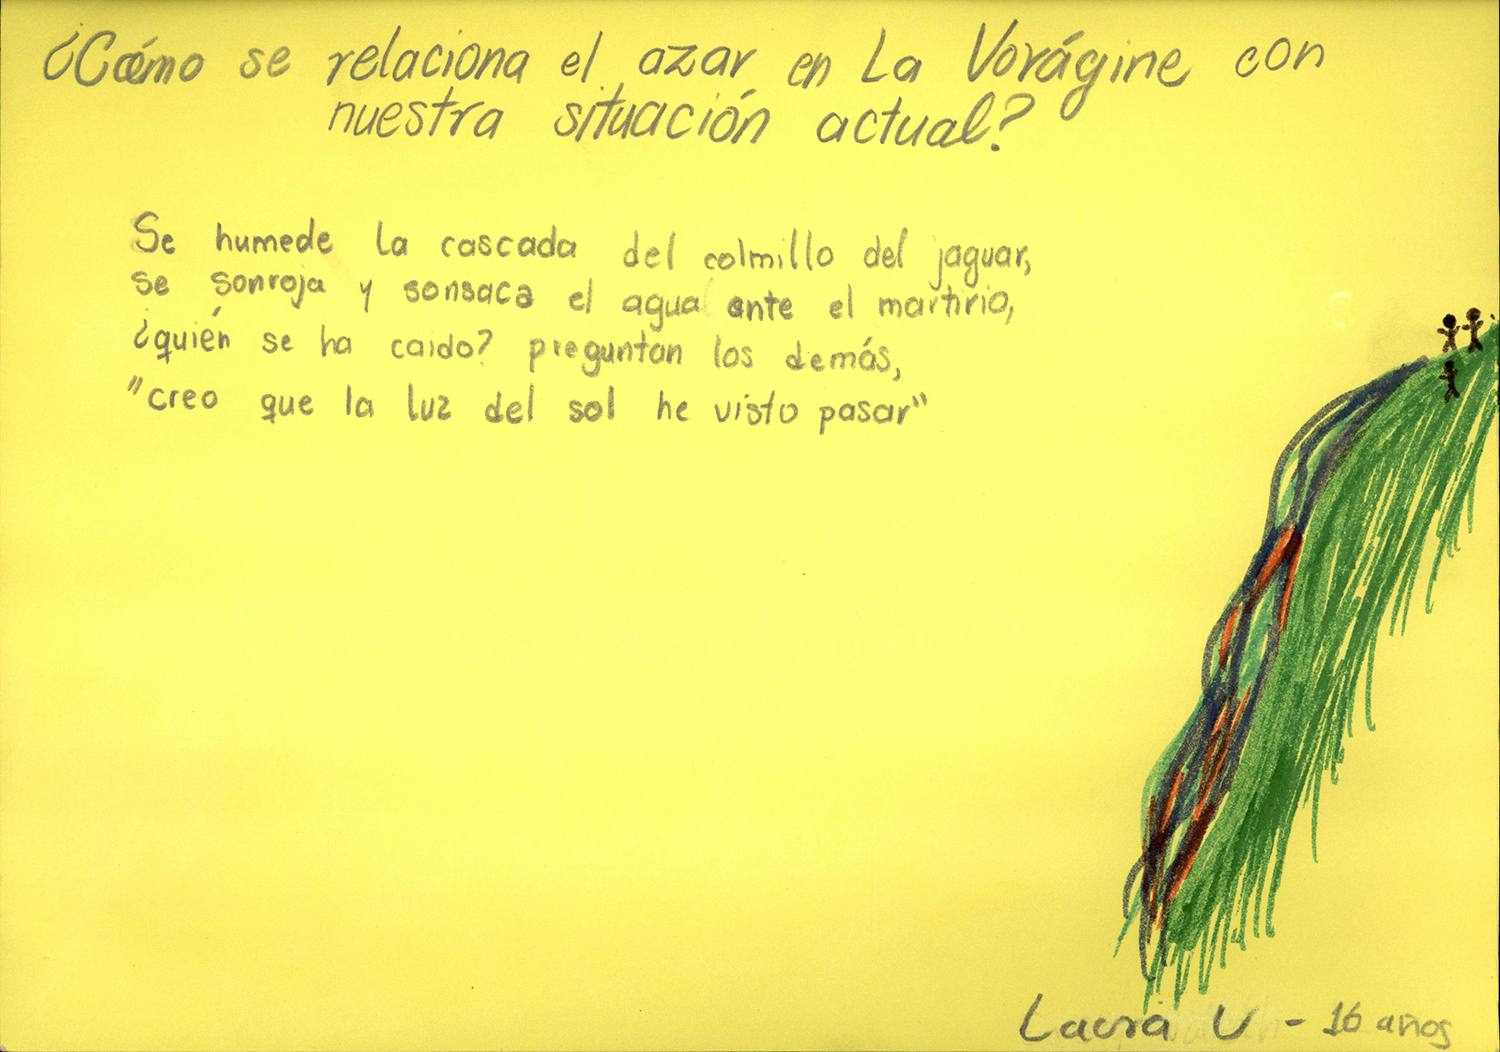 ¿Cómo se relaciona el azar en La Vorágine con
nuestra situación actual?
Se humede la cascada del colmillo del jaguar,
se sonroja y sonsaca el agua ante el martirio,
¿quién se ha caido? preguntan los demás,
"creo que la luz del sol he visto pasar"
Laura U - 16 años